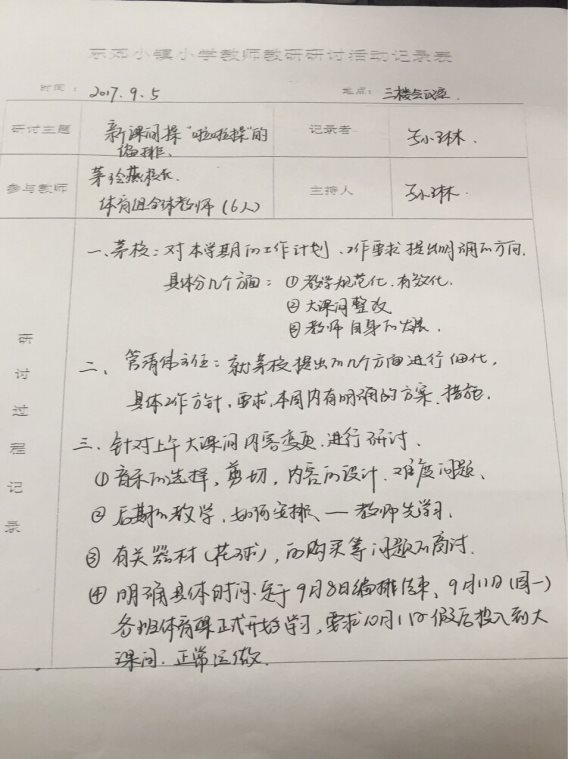 东郊小镇小学教师教研研讨活动记录表
时间： 2017.9.5 地点： 三楼会议室
研讨主题 新课间操"啦啦操"的 记录者
编排.
参与教师 茅玲燕校长 主持人
体育组全体教师（6人）
研讨过程记录
一、茅校：对本学期的工作计划、工作要求提出明确的方向.
具体分几个方面：①教学规范化.有效化.
②大课间整改
③教师自身的发展.
二、管清伟主任：就茅校提出的几个方面进行细化,
具体工作方针,要求,本周内有明确的方案.措施.
三、针对上午大课间内容变更.进行研讨.
①音乐的选择,剪切,内容的设计.难度问题、
②后期的教学,如何安排、—教师先学习.
③有关器材（花球）,的购买等问题的商讨.
④明确具体时间.定于9月8日编排结束、9月11日（周一）
各班体育课正式开始学习,要求10月1日假后投入到大
课间.正常运做.